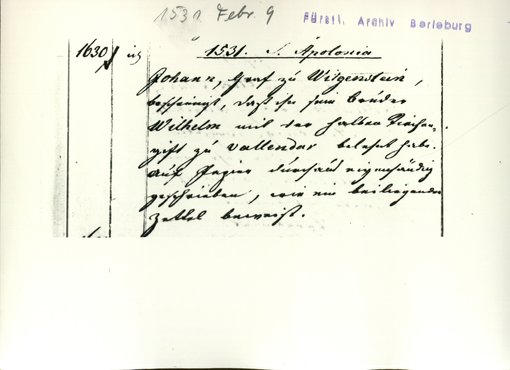 1531 Febr. 9
Fürstl. Archiv Berleburg
1630
1531. S. Apolonia
Johann, Graf zu Witgenstein,
bescheinigt, daß ihn sein Bruder
Wilhelm mit der halben Kirchen-
gift zu Vallendar belehnt habe.
Auf Papier durchaus eigenhändig
geschrieben, wie ein beiliegender
Zettel beweist.